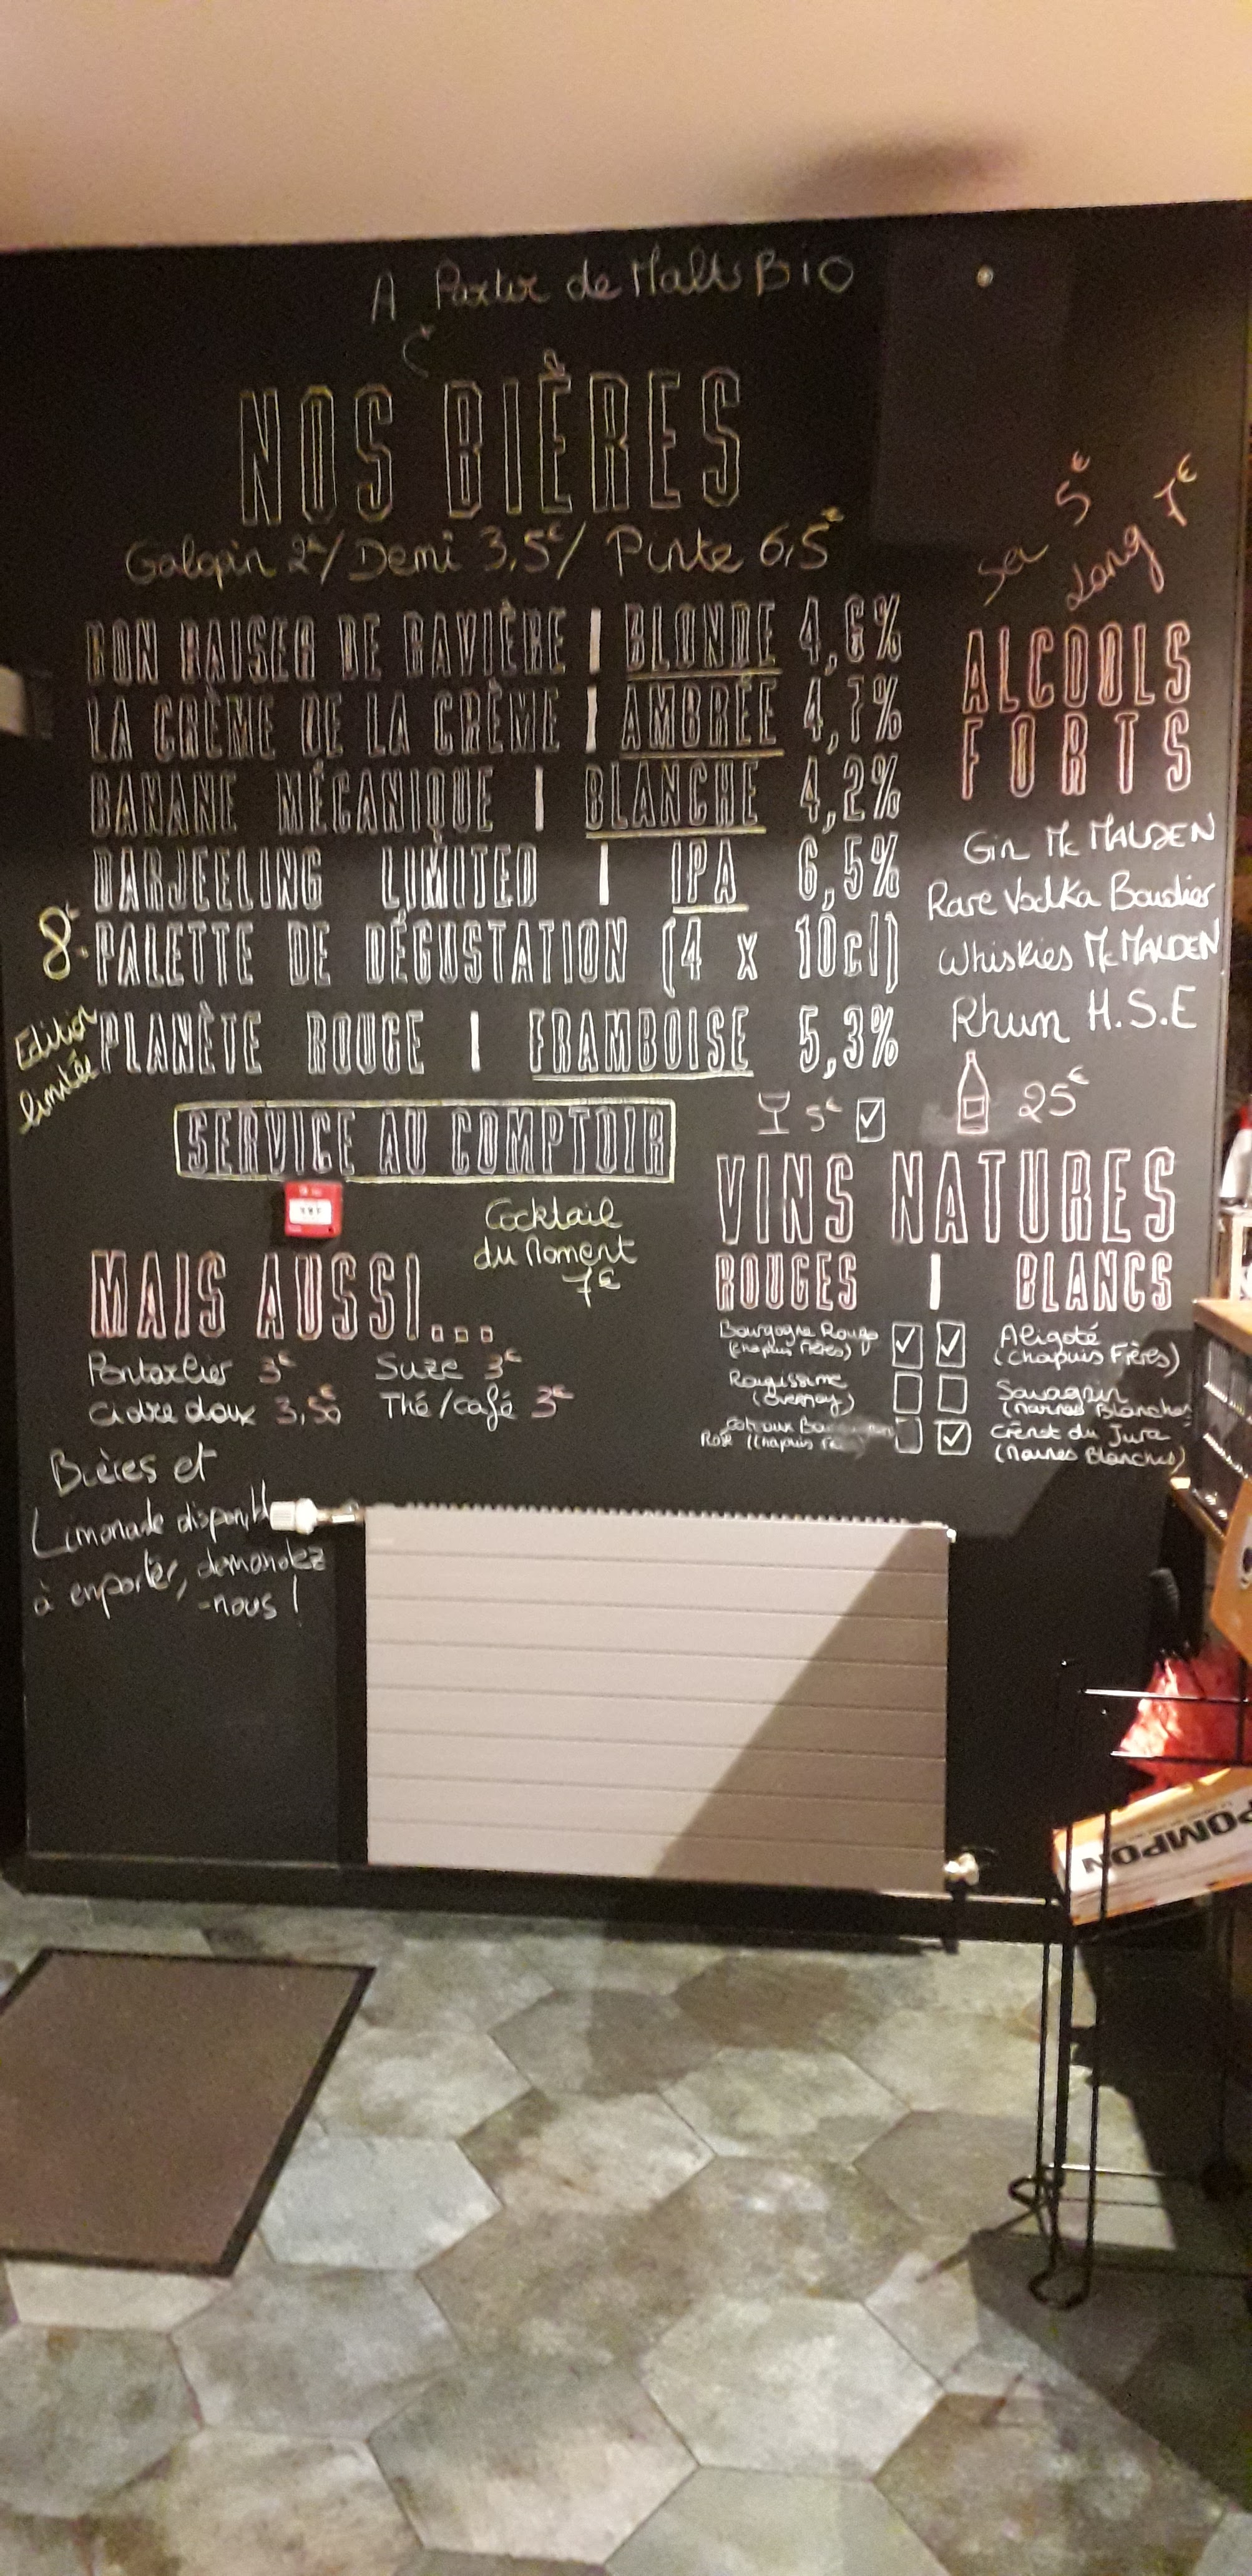 A Partir de Malts BIO
NOS BIÈRES
Galopin 2€/ Demi 3,5€/ Pinte 6,5€
BON BAISER DE BAVIÈRE | BLONDE 4,6%
LA CRÈME DE LA CRÈME | AMBRÉE 4,7%
BANANE MÉCANIQUE | BLANCHE 4,2%
DARJEELING LIMITED | IPA 6,5%
8€ PALETTE DE DÉGUSTATION (4 x 10cl)
Edition limitée
PLANÈTE ROUGE | FRAMBOISE 5,3%
SERVICE AU COMPTOIR
Sec 5€
Long 7€
ALCOOLS
FORTS
Gin Mc MALDEN
Rare Vodka Baudier
Whiskies Mc MALDEN
Rhum H.S.E
5€ 25€
VINS NATURES
ROUGES | BLANCS
Bourgogne Rouge
(Chapuis Frères)
Rougissime
(Overnoy)
Coteaux
Rosé (Chapuis
Aligoté
(Chapuis Frères)
Savagnin
(Marnes Blanches)
Crémant du Jura
(Marnes Blanches)
Cocktail
du Moment
7€
MAIS AUSSI...
Pontarlier 3€ Suze 3€
Cidre doux 3,5€ Thé/café 3€
Bières et
Limonade disponible
à emporter, demandez
-nous !
POMPON